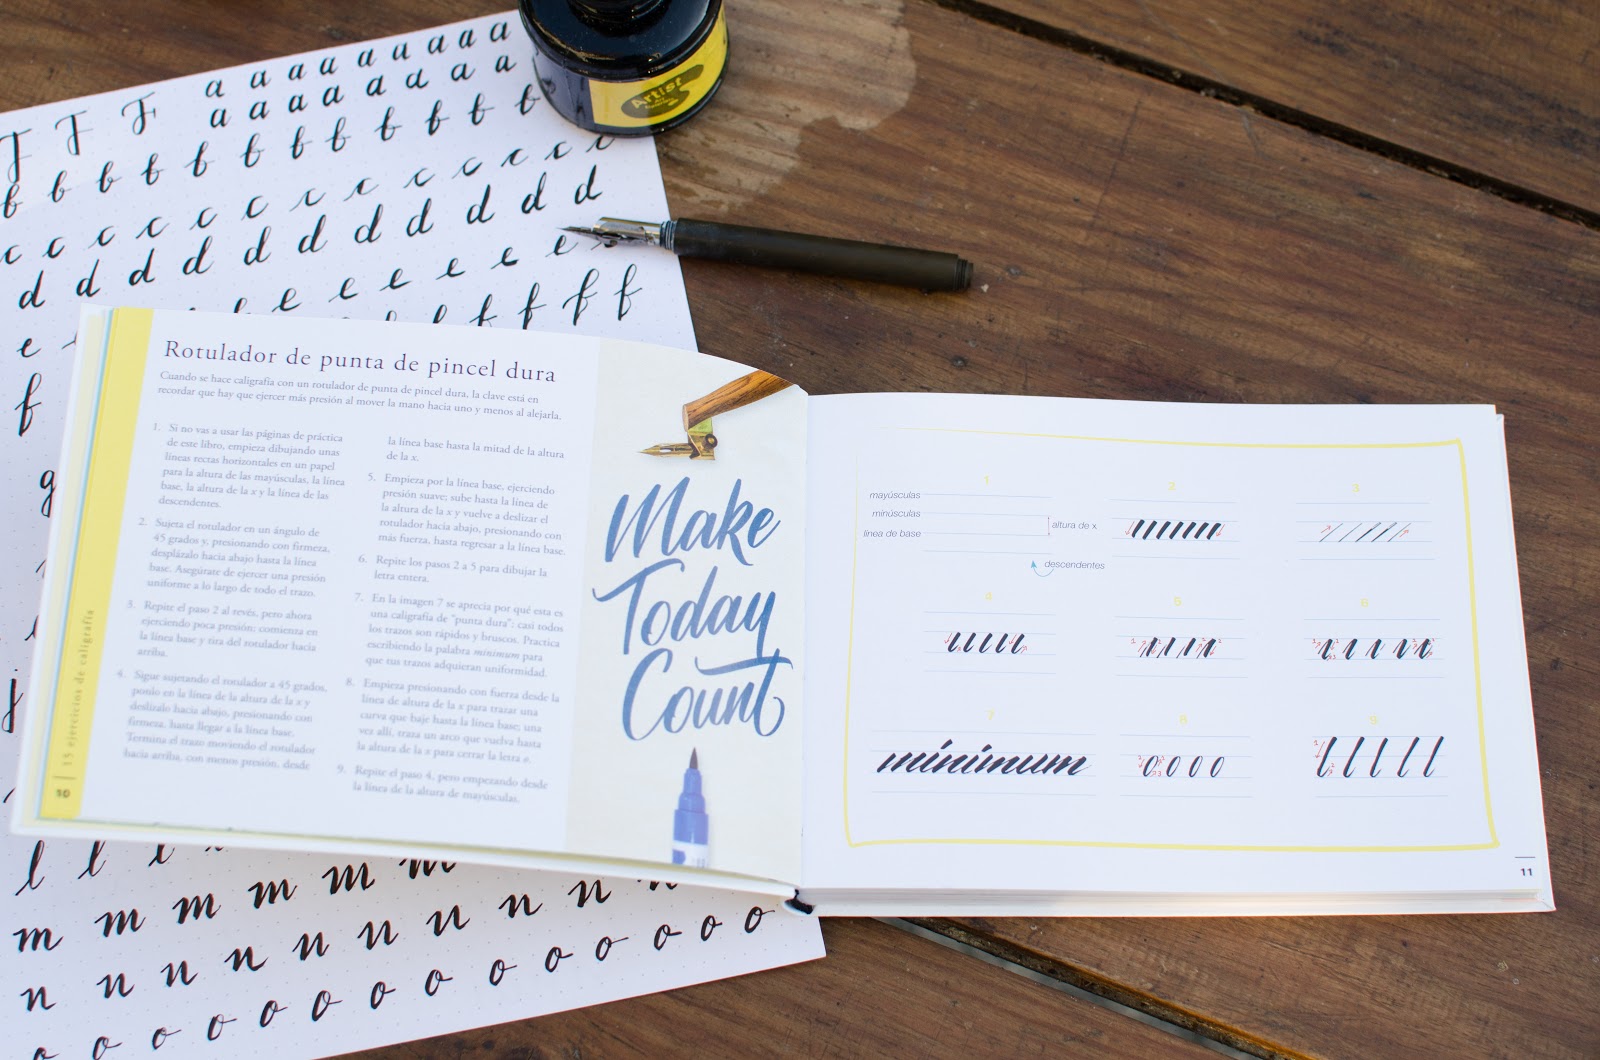 F F F a a a a a a a
a a a a a a a a
b b b b b b b b b b b
c c c c c c c c c c c c c
d d d d d d d d d d d
e e e e e e e
f f f f f
Artist
Rotulador de punta de pincel dura
Cuando se hace caligrafía con un rotulador de punta de pincel dura, la clave está en
recordar que hay que ejercer más presión al mover la mano hacia uno y menos al alejarla.
1. Si no vas a usar las páginas de práctica
de este libro, empieza dibujando unas
líneas rectas horizontales en un papel
para la altura de las mayúsculas, la línea
base, la altura de la x y la línea de las
descendentes.
2. Sujeta el rotulador en un ángulo de
45 grados y, presionando con firmeza,
desplázalo hacia abajo hasta la línea
base. Asegúrate de ejercer una presión
uniforme a lo largo de todo el trazo.
3. Repite el paso 2 al revés, pero ahora
ejerciendo poca presión: comienza en
la línea base y tira del rotulador hacia
arriba.
4. Sigue sujetando el rotulador a 45 grados,
ponlo en la línea de la altura de la x y
deslízalo hacia abajo, presionando con
firmeza, hasta llegar a la línea base.
Termina el trazo moviendo el rotulador
hacia arriba, con menos presión, desde
la línea base hasta la mitad de la altura
de la x.
5. Empieza por la línea base, ejerciendo
presión suave; sube hasta la línea de
la altura de la x y vuelve a deslizar el
rotulador hacia abajo, presionando con
más fuerza, hasta regresar a la línea base.
6. Repite los pasos 2 a 5 para dibujar la
letra entera.
7. En la imagen 7 se aprecia por qué esta es
una caligrafía de “punta dura”: casi todos
los trazos son rápidos y bruscos. Practica
escribiendo la palabra minimum para
que tus trazos adquieran uniformidad.
8. Empieza presionando con fuerza desde la
línea de altura de la x para trazar una
curva que baje hasta la línea base; una
vez allí, traza un arco que vuelva hasta
la altura de la x para cerrar la letra o.
9. Repite el paso 4, pero empezando desde
la línea de la altura de mayúsculas.
10 | 15 ejercicios de caligrafía
Make
Today
Count
1
mayúsculas
minúsculas
línea de base
altura de x
descendentes
2
3
4
5
6
7
minimum
8
o o o o
9
l l l l l
11
l l l
m m m m m m
n n n n n n n n n
o o o o o o o o o o o o o